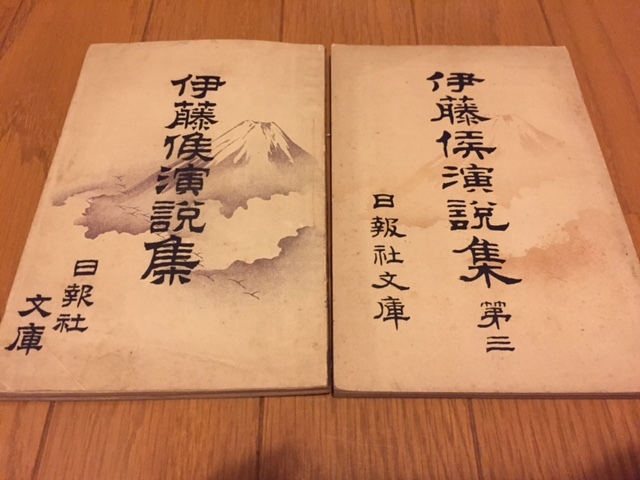 伊藤侯演説集
日報社
文庫
伊藤侯演説集
第三
日報社文庫